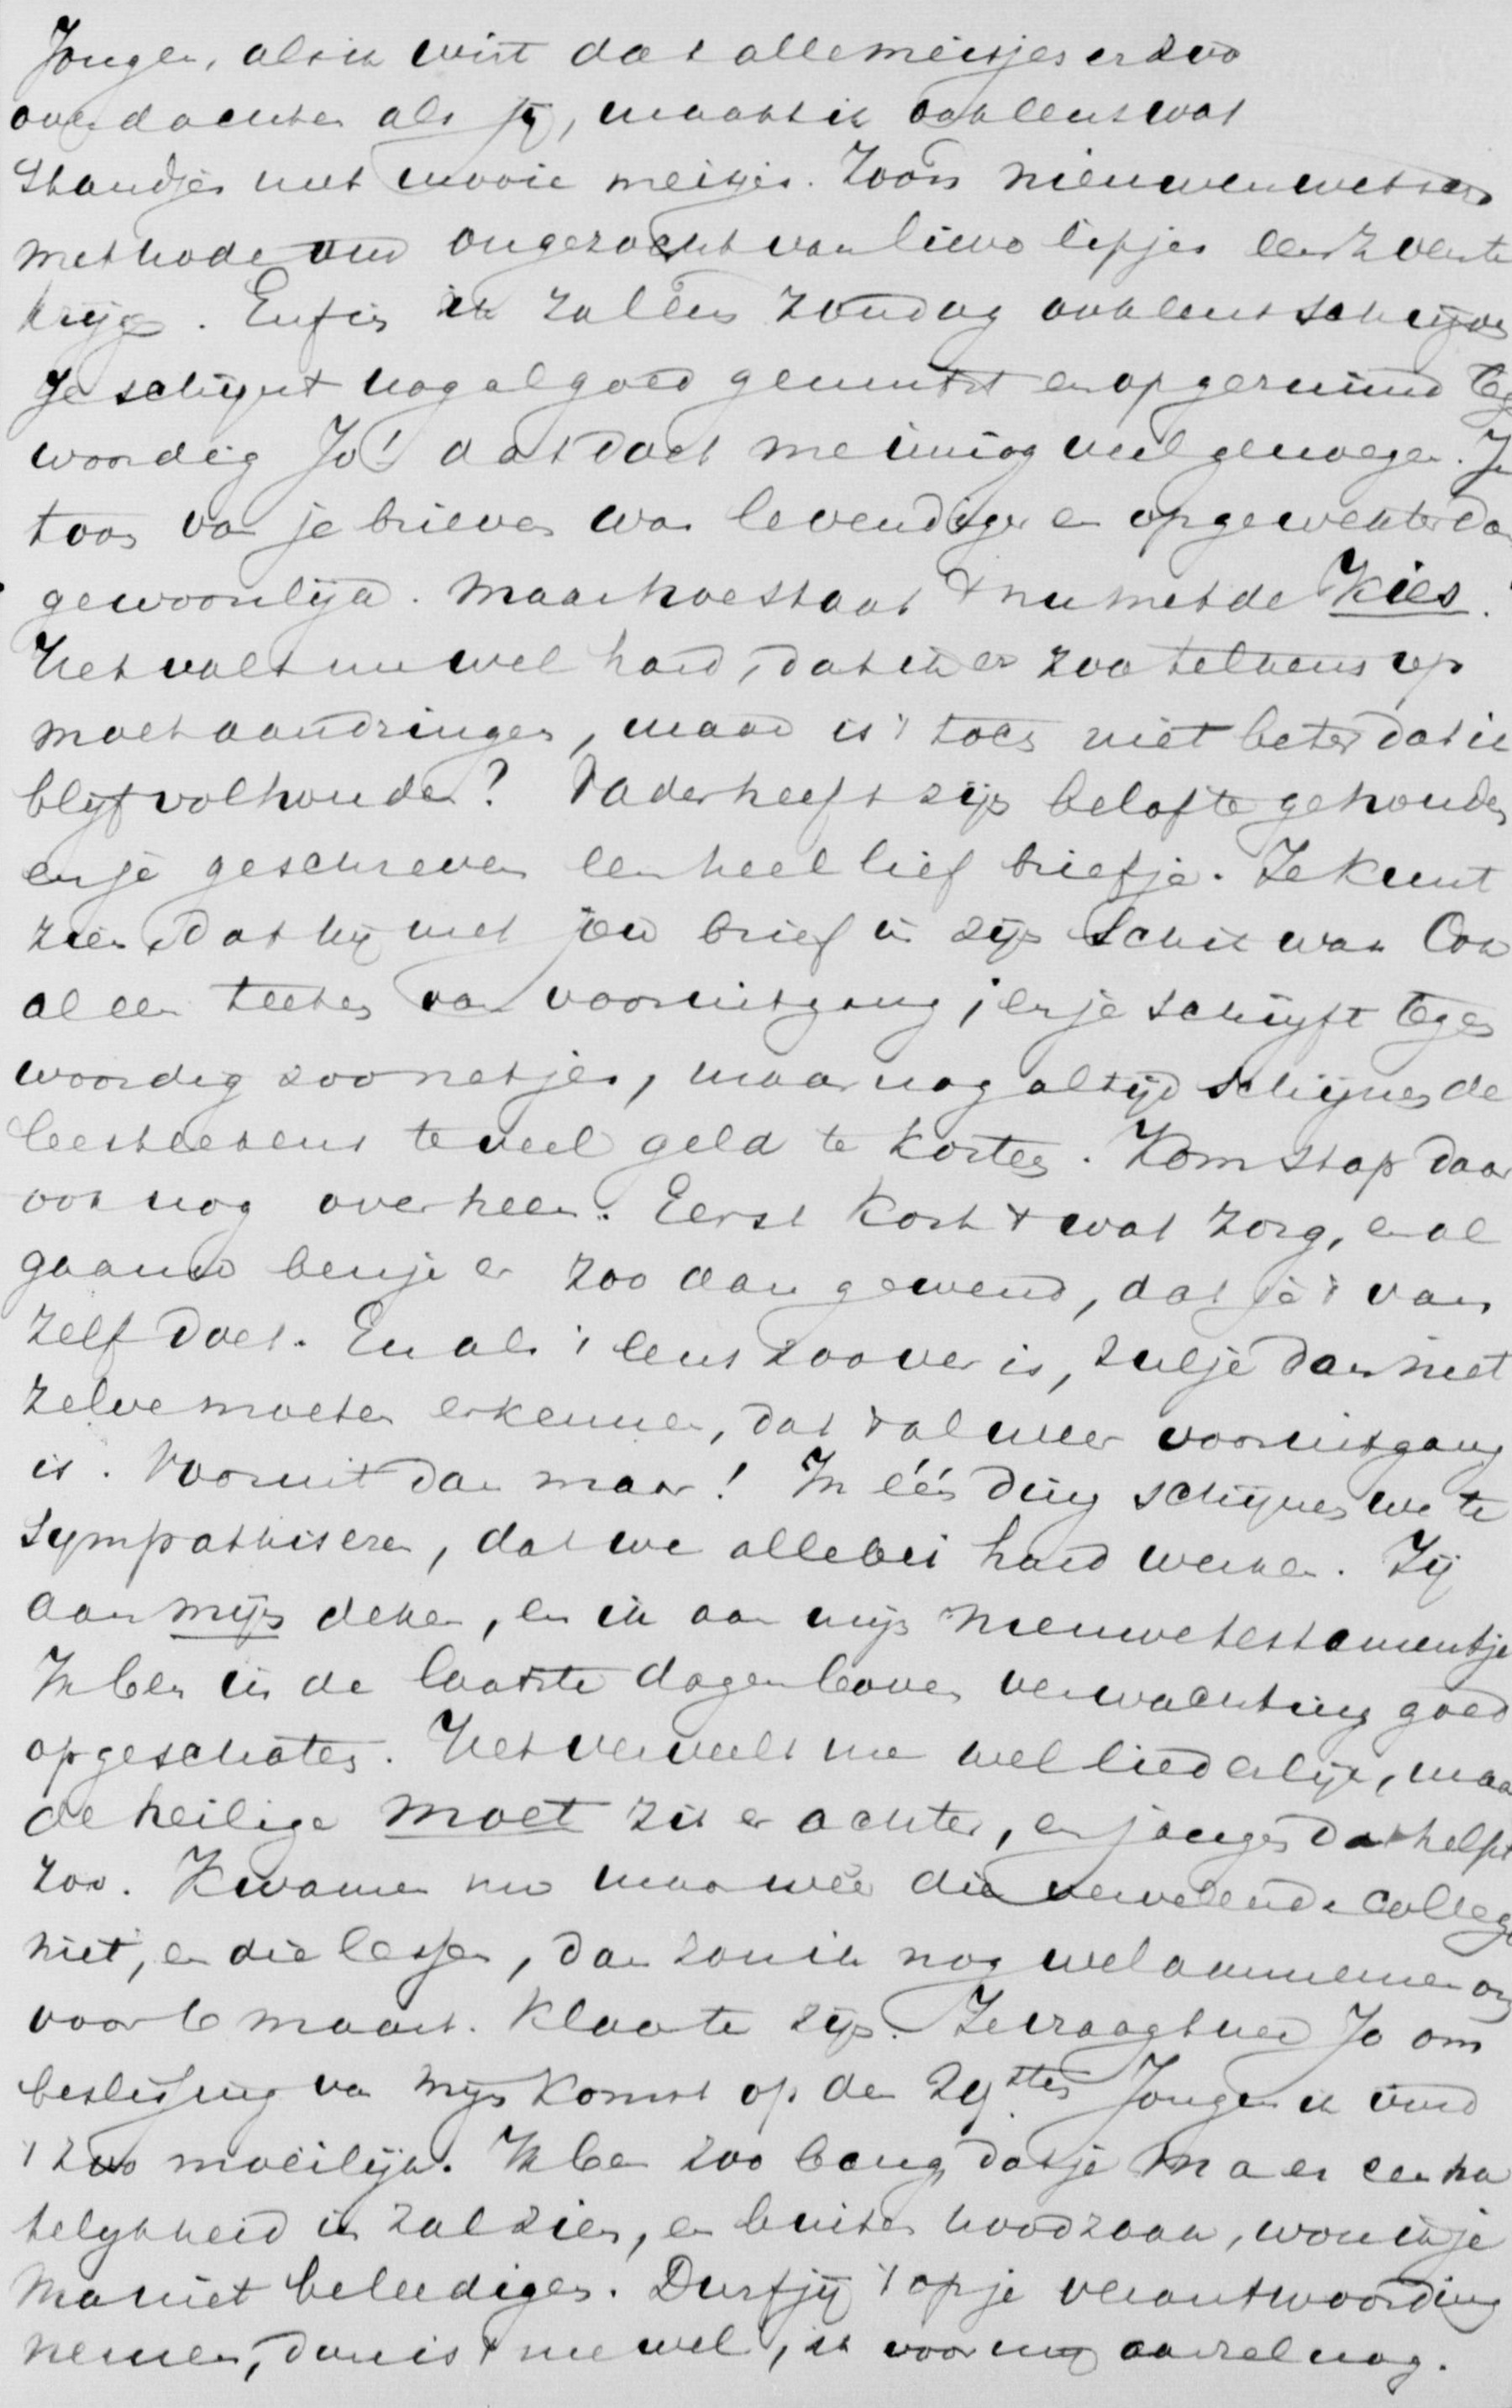 Jongen, als ik wist dat alle meisjes er zoo
over dachten als jij, maakt ik ook eens wat
standjes met mooie meisjes. Zoo'n nieuwerwetsche
methode om ongezocht van lieve lipjes een zoen te
krijgen. Enfin ik zal een Zondag ook eens schrijven
Je schijnt nogal goed gemutst en opgeruimd teg
woordig Jo! dat doet me innig veel genoegen. Je
toon van je brieven was levendiger en opgewekter dan
gewoonlijk. Maar hoe staat 't nu met de Kies.
Het valt me wel hard, dat ik er zoo telkens op
moet aandringen, maar is 't toch niet beter dat ik
blijf volhouden? Vader heeft zijn belofte gehouden
en je geschreven een heel lief briefje. Je kunt
zien, dat hij met jou brief in zijn schik was Ook
al een teeken van vooruitgang; en je schrijft tegen
woordig zoo netjes, maar nog altijd schijnen de
leesteekens te veel geld te kosten. Kom stap daar
ook nog over heen. Eerst kost 't wat zorg, en al
gaande ben je er zoo aan gewend, dat je 't van
zelf doet. En als 't eens zoover is, zul je dan niet
zelve moeten erkennen, dat 't al weer vooruitgang
is. Vooruit dan maar! In één ding schijnen we te
sympathiseren, dat we allebei hard werken. Jij
aan mijn deken, en ik aan mijn Nieuwe testamentje
Ik ben in de laatste dagen boven verwachting goed
opgeschoten. Het verveelt me wel liederlijk, maar
de heilige moet zit er achter, en jongen dat helpt
zoo. Kwamen nu maar weer die vervelende college
niet, en die lessen, dan zou ik nog wel aannemen om
voor 6 maart klaar te zijn. Je vraagt me Jo om
beslissing van mijn komst op den 29sten Jongen ik vind
't zoo moeilijk. Ik ben zoo bang, dat je Ma er een ha
telijkheid in zal zien, en buiten noodzaak, wou ik je
Ma niet beleedigen. Durf jij 't op je verantwoording
nemen, dan is 't me wel, ik voor mij aarzel nog.